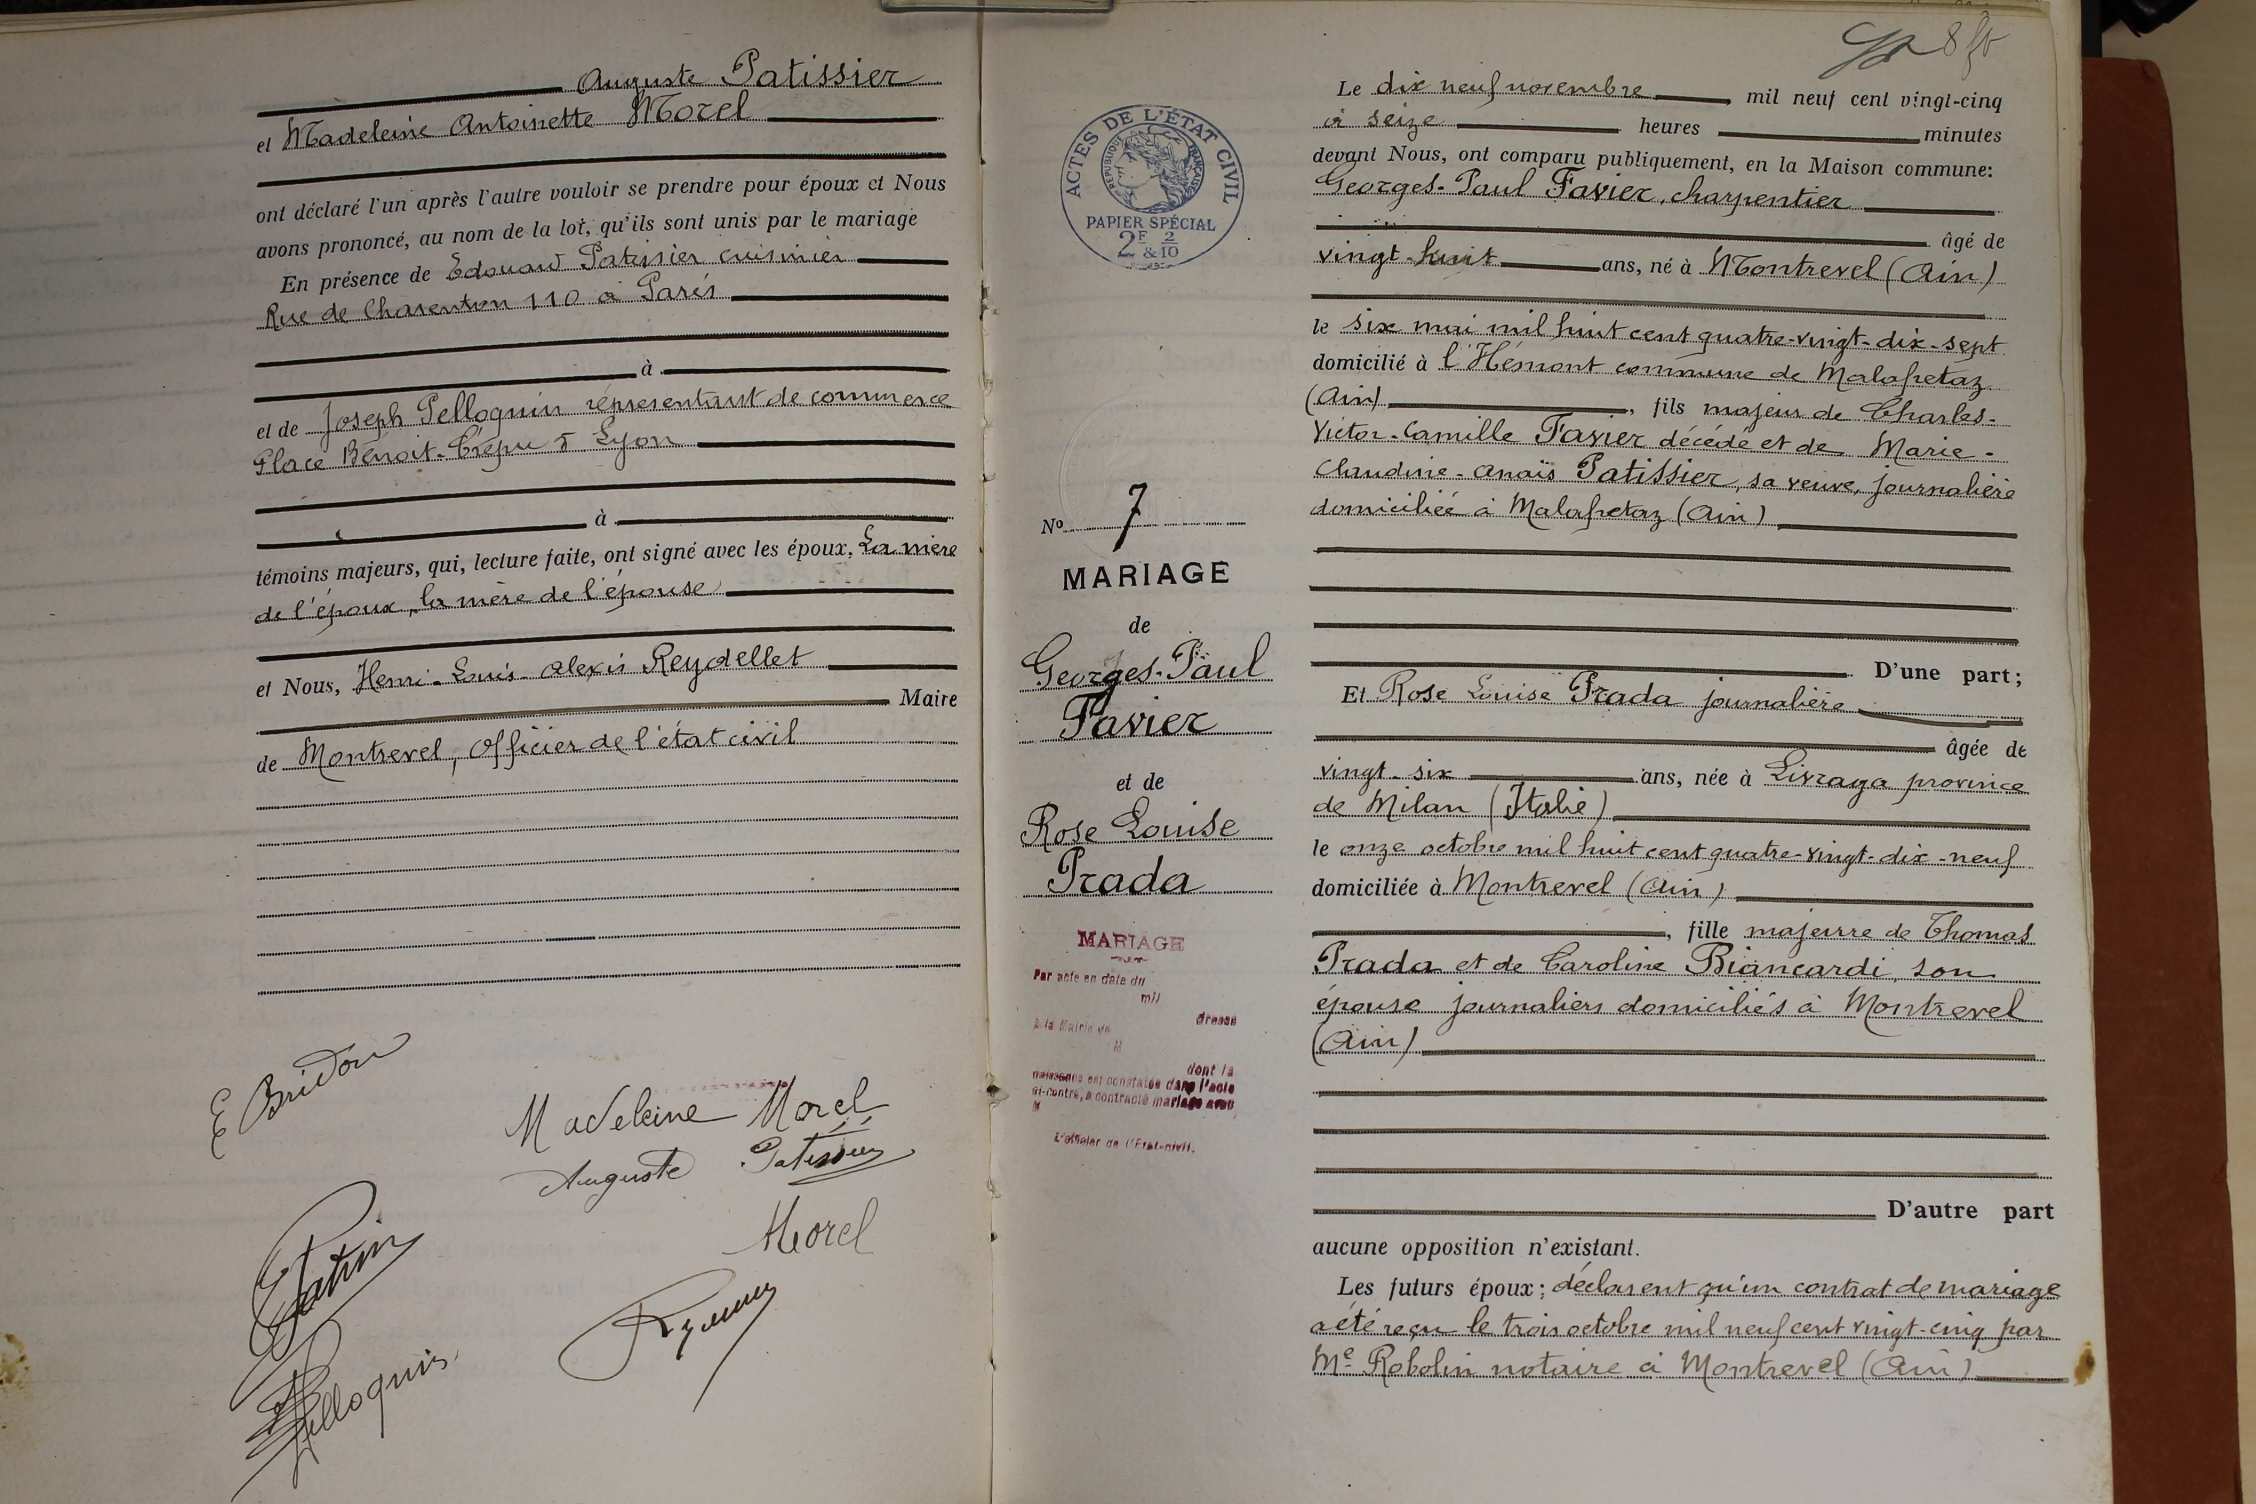 Auguste Patissier
et Madeleine Antoinette Morel
ont déclaré l'un après l'autre vouloir se prendre pour époux et Nous
avons prononcé, au nom de la loi, qu'ils sont unis par le mariage
En présence de Edouard Patissier cuisinier
Rue de Charenton 110 à Paris
à
et de Joseph Pelloquin répresentant de commerce
Place Benoit-Crépu à Lyon
à
témoins majeurs, qui, lecture faite, ont signé avec les époux, La mère
de l'époux, la mère de l'épouse
et Nous, Henri-Louis-Alexis Reydellet
Maire
de Montrevel, Officier de l'état civil
E Bridon
Madeleine Morel
Auguste Patissier
Morel
Pelloquin
8 fo
Le dix neuf novembre mil neuf cent vingt-cinq
à seize heures minutes
devant Nous, ont comparu publiquement, en la Maison commune:
Georges-Paul Favier, charpentier
âgé de
vingt-huit ans, né à Montrevel (Ain)
le six mai mil huit cent quatre-vingt-dix-sept
domicilié à l'Hémont commune de Malafretaz
(Ain), fils majeur de Charles-
Victor-Camille Favier décédé et de Marie-
Claudine-Anaïs Patissier, sa veuve, journalière
domiciliée à Malafretaz (Ain)
D'une part;
Et Rose Louise Prada journalière
âgée de
vingt-six ans, née à Livraga province
de Milan (Italie)
le onze octobre mil huit cent quatre-vingt-dix-neuf
domiciliée à Montrevel (Ain)
, fille majeure de Thomas
Prada et de Caroline Biancardi, son
épouse journaliers domiciliés à Montrevel
(Ain)
D'autre part
aucune opposition n'existant.
Les futurs époux; déclarent qu'un contrat de mariage
a été reçu le trois octobre mil neuf cent vingt-cinq par
Me Robolin notaire à Montrevel (Ain)
ACTES DE L'ÉTAT CIVIL
RÉPUBLIQUE FRANÇAISE
PAPIER SPÉCIAL
2F & 2/10
No 7
MARIAGE
de
Georges-Paul
Favier
et de
Rose Louise
Prada
MARIAGE
Par acte en date du
mil
dressé
à la Mairie de
M
dont la
naissance est constatée dans l'acte
ci-contre, a contracté mariage avec
M
L'officier de l'Etat-civil.